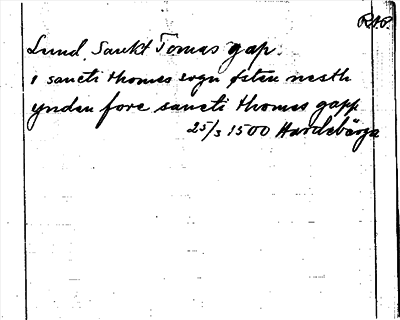 R.A.P.
Lund, Sankt Tomas gap.
i sancti thomes sogn østen nesth
ynden fore sancti thomes gapp
25/3 1500 Hardebärga